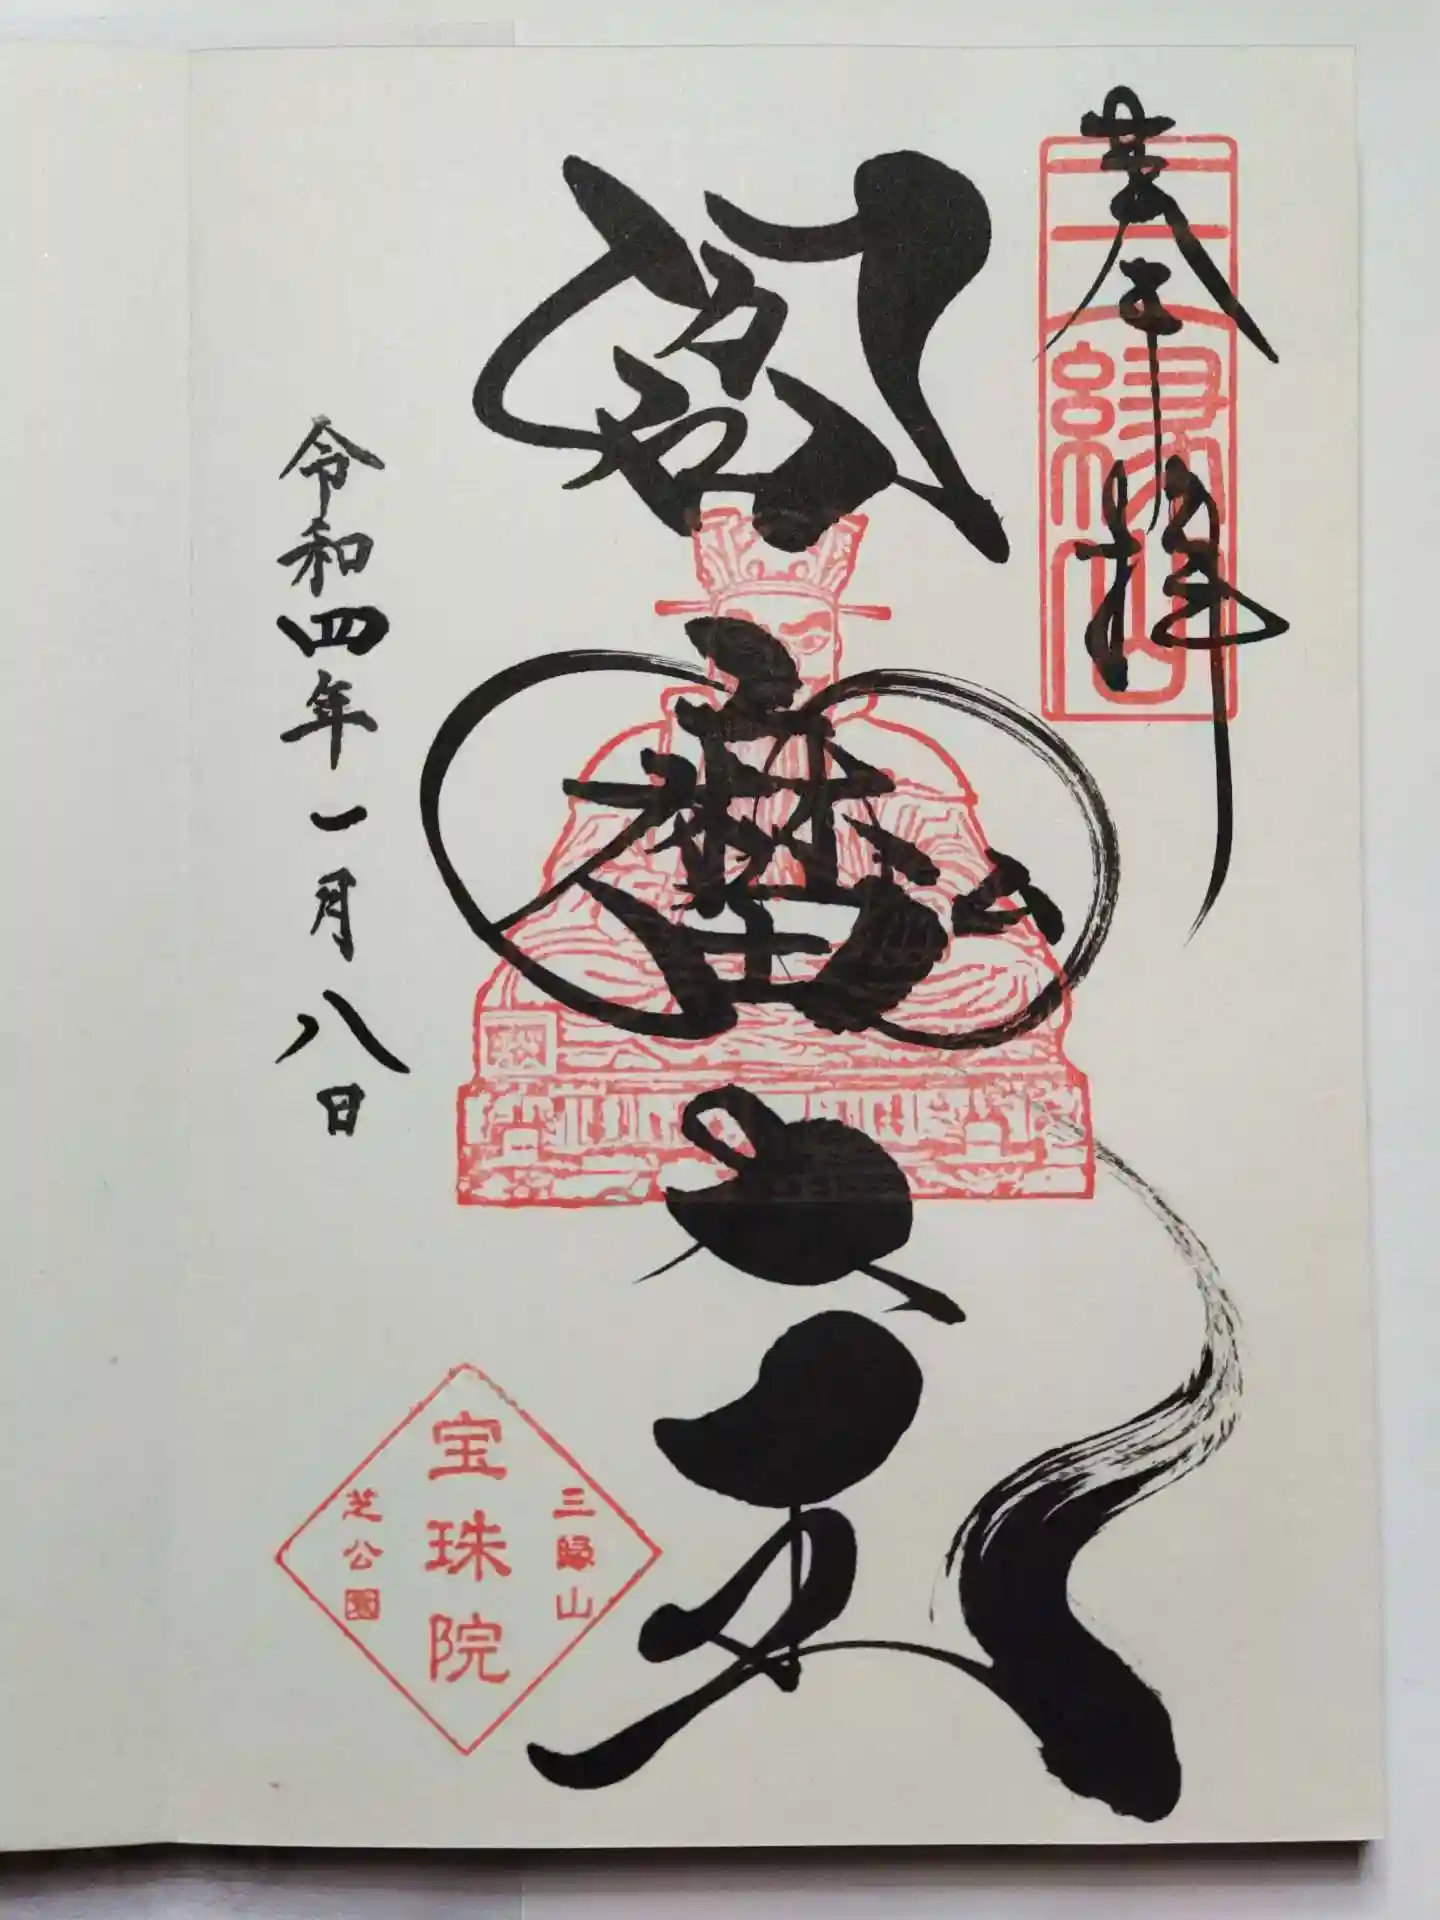 奉拝
三縁山
閻魔大王
令和四年一月八日
三縁山
宝珠院
芝公園